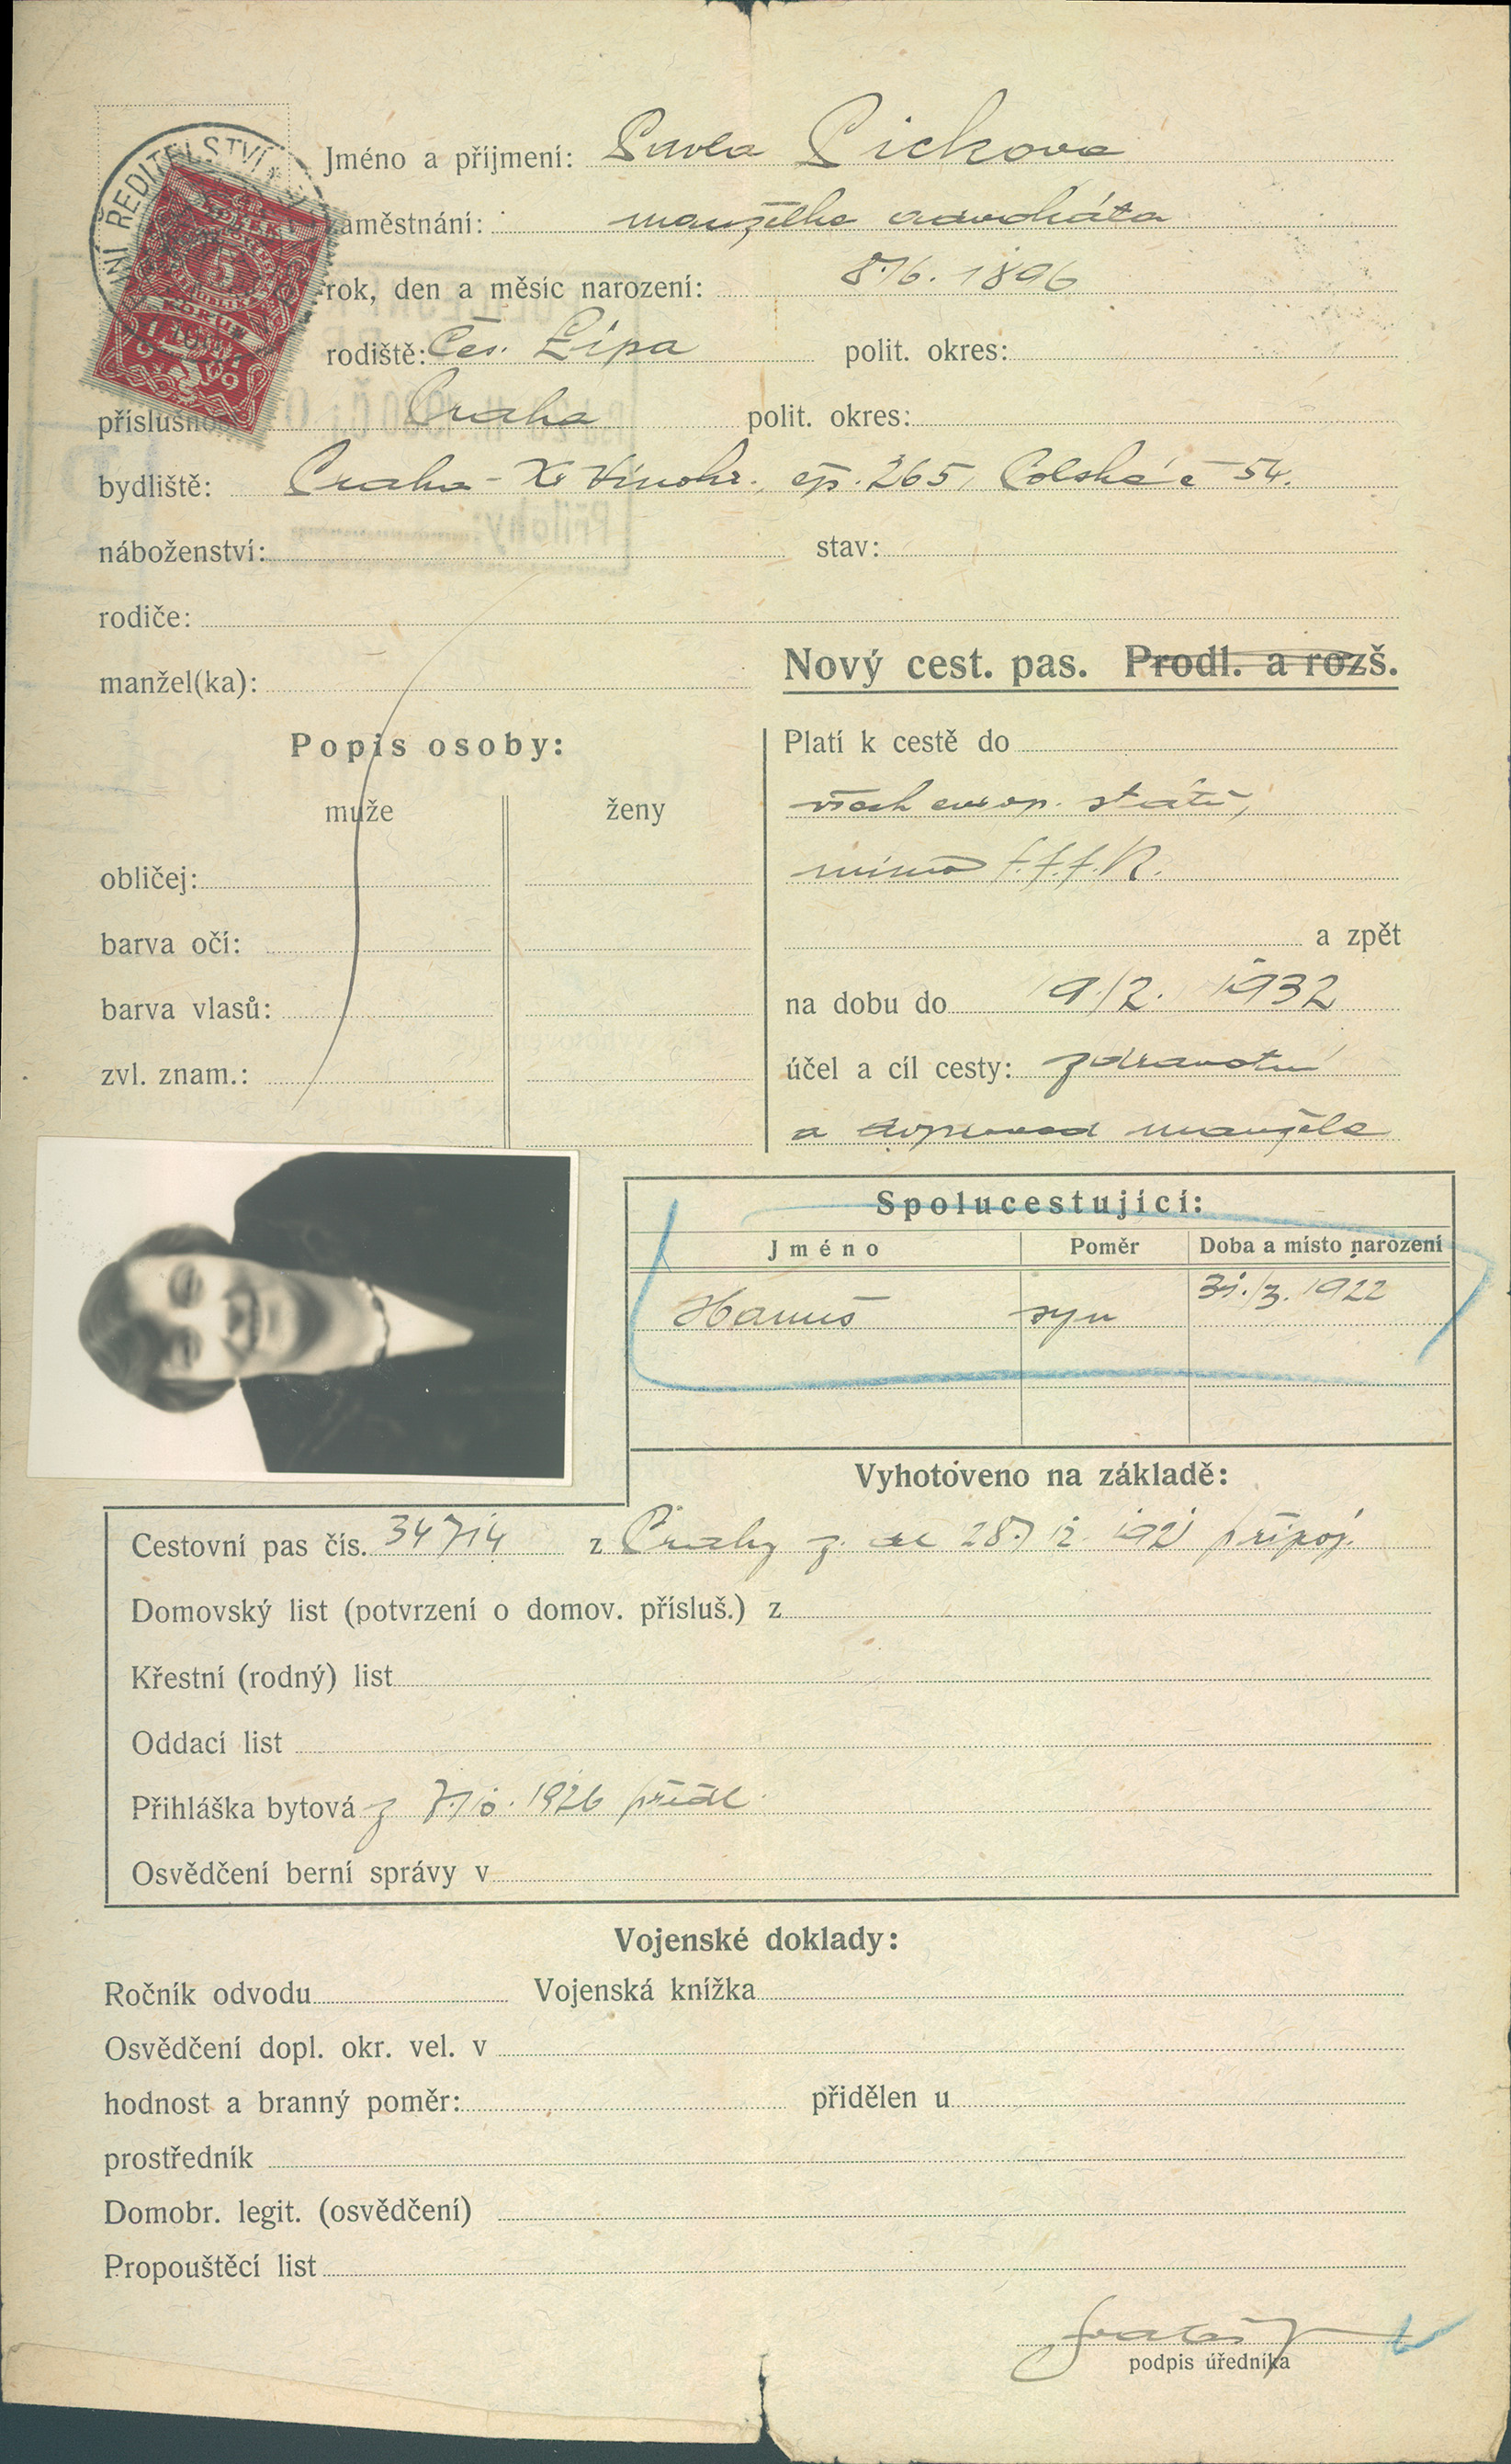 NÍ ŘEDITELSTVÍ
5
Jméno a příjmení: Pavla Picková
zaměstnání: manželka advokáta
rok, den a měsíc narození: 8./6. 1896
rodiště: Čes. Lípa polit. okres:
příslušno Praha polit. okres:
bydliště: Praha - XII Vinohr. čp. 265, Polská č 54.
náboženství: stav:
rodiče:
manžel(ka):
Nový cest. pas. Prodl. a rozš.
Popis osoby:
muže ženy
obličej:
barva očí:
barva vlasů:
zvl. znam.:
Platí k cestě do
všech evrop. států,
mimo S.S.S.R.
a zpět
na dobu do 19./2. 1932
účel a cíl cesty: zdravotní
a doprovod manžela
Spolucestující:
Jméno Poměr Doba a místo narození
Hanuš syn 31./3. 1922
Vyhotoveno na základě:
Cestovní pas čís. 34714 z Prahy z 28./12. 1921 připoj.
Domovský list (potvrzení o domov. přísluš.) z
Křestní (rodný) list
Oddací list
Přihláška bytová z 1926 předl.
Osvědčení berní správy v
Vojenské doklady:
Ročník odvodu Vojenská knížka
Osvědčení dopl. okr. vel. v
hodnost a branný poměr: přidělen u
prostředník
Domobr. legit. (osvědčení)
Propouštěcí list
podpis úředníka